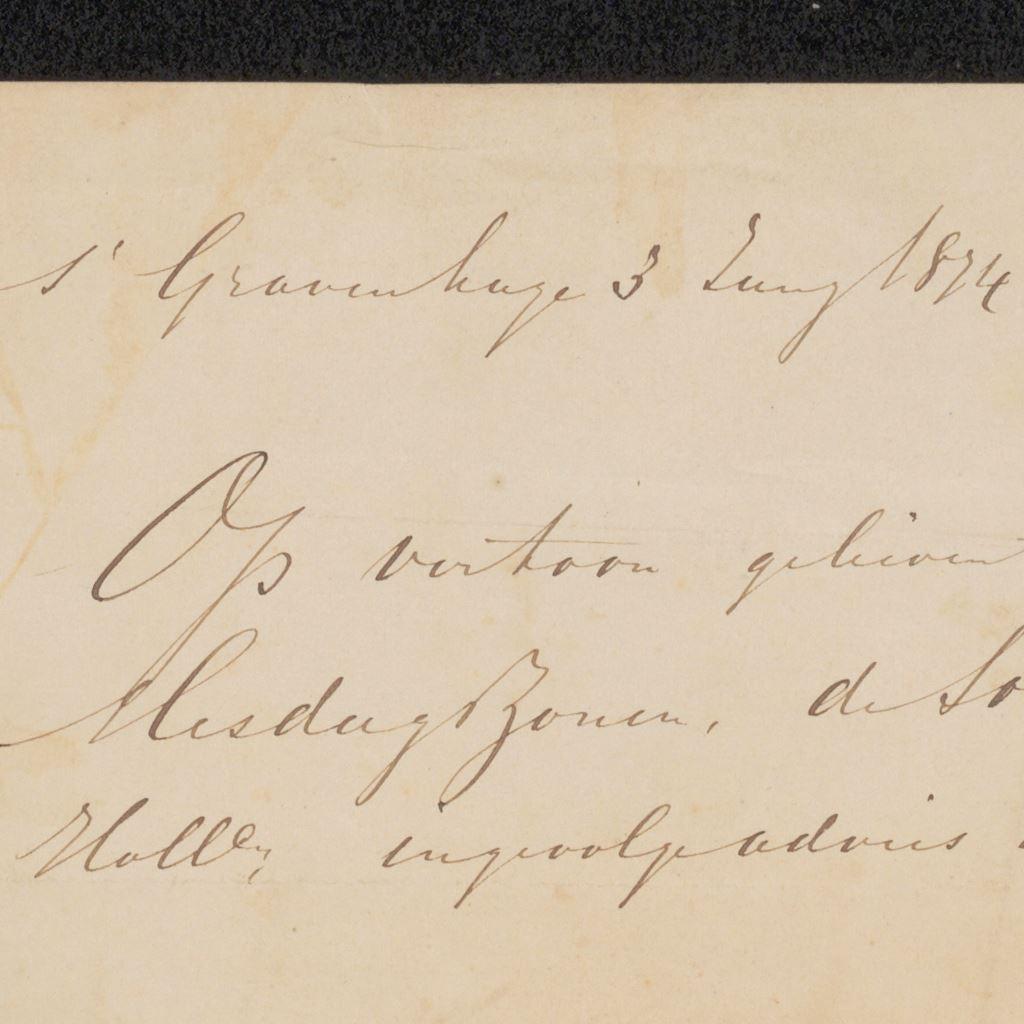 s' Gravenhage 3 Juny 1874
Op vertoon gelieven
Mesdag & Zonen, de
Holl^en, ingevolge advies